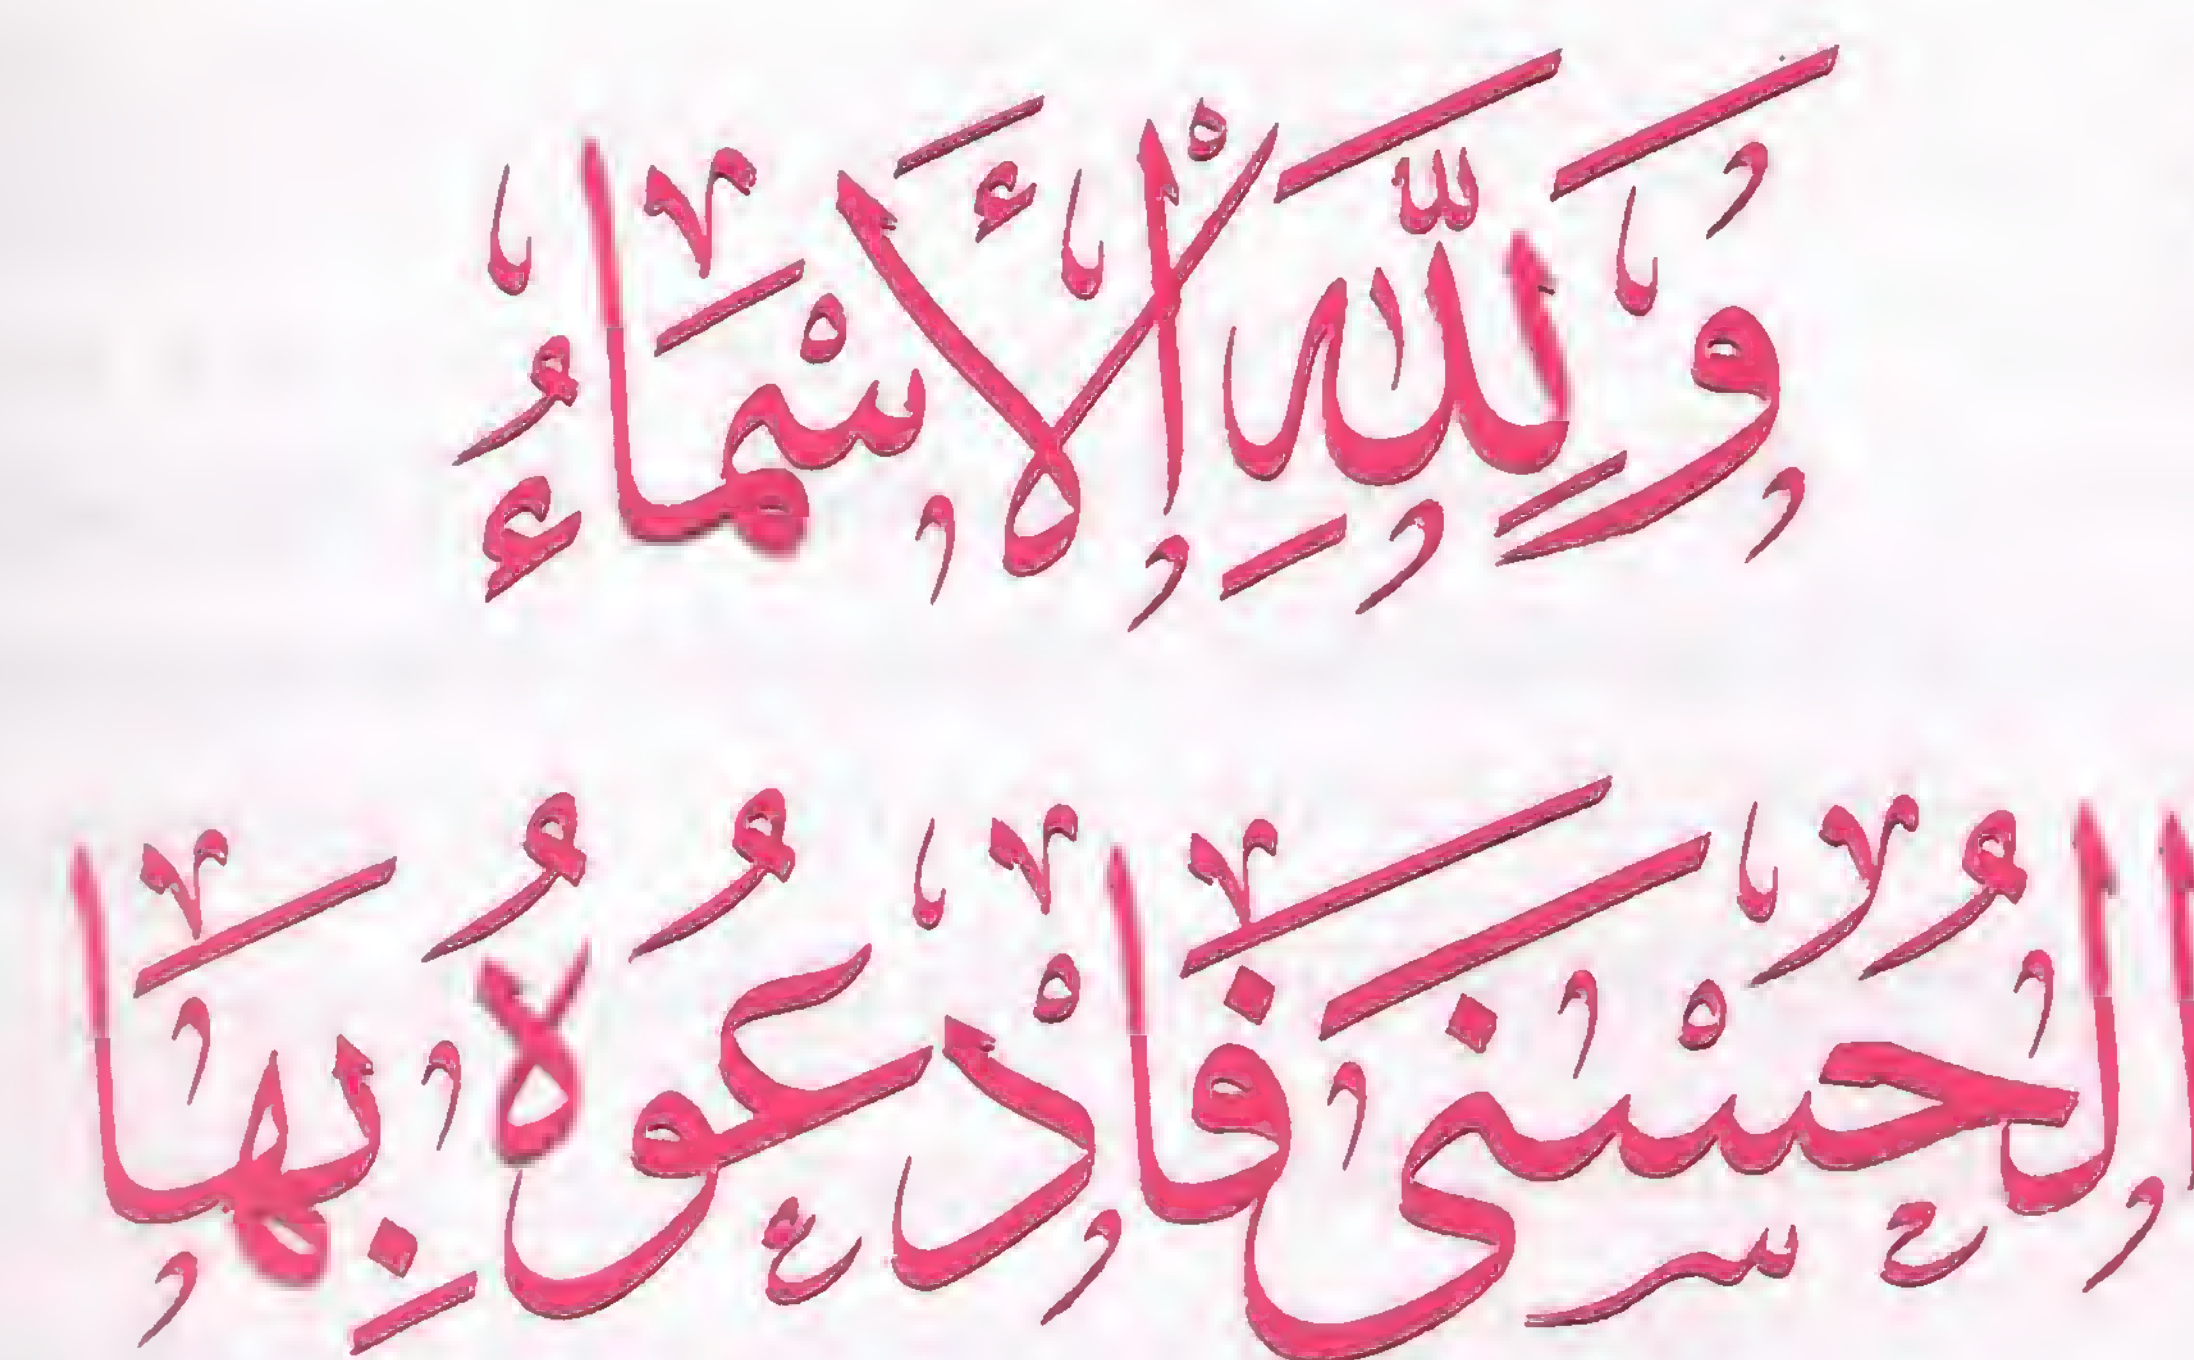 وَلِلَّهِ الْأَسْمَاءُ
الْحُسْنَى فَادْعُوهُ بِهَا